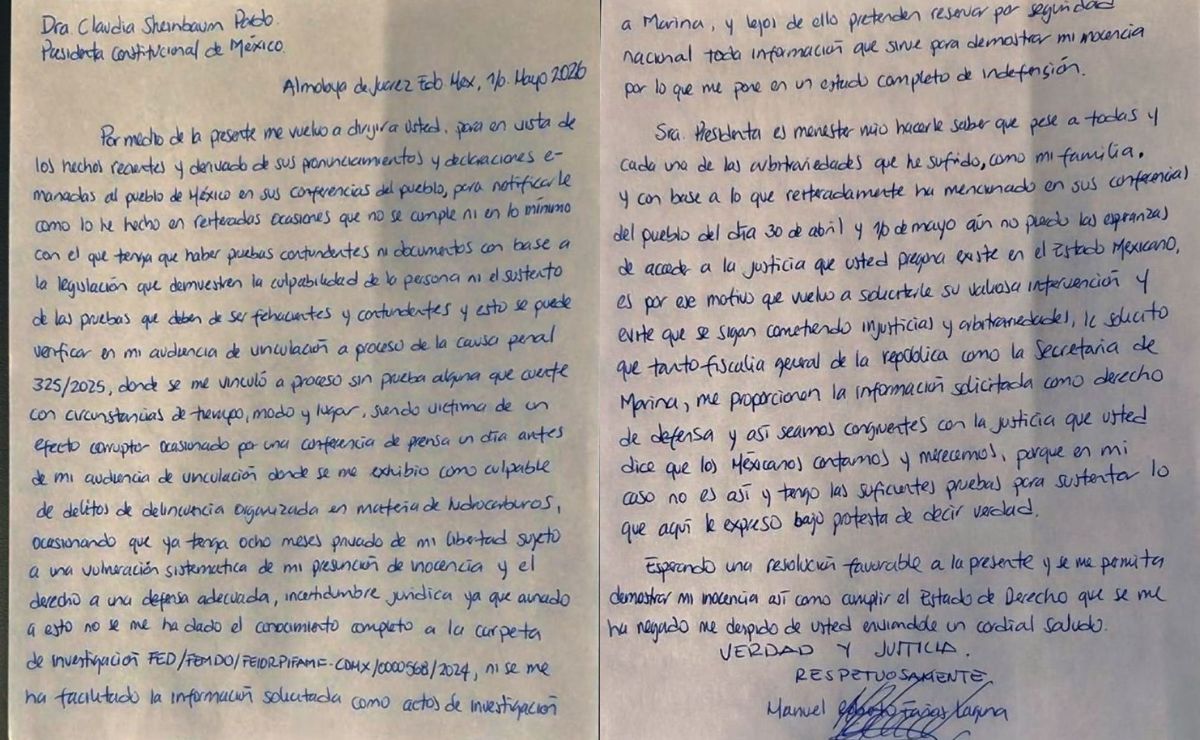 Dra. Claudia Sheinbaum Pardo.
Presidenta Constitucional de México.
Almoloya de Juárez Edo Mex, 1/o. Mayo 2026
Por medio de la presente me vuelvo a dirigir a usted, para en vista de
los hechos recientes y derivado de sus pronunciamientos y declaraciones e-
manadas al pueblo de México en sus conferencias del pueblo, para notificarle
como lo he hecho en reiteradas ocasiones que no se cumple ni en lo mínimo
con el que tenga que haber pruebas contundentes ni documentos con base a
la legislación que demuestren la culpabilidad de la persona ni el sustento
de las pruebas que deben de ser fehacientes y contundentes y esto se puede
verificar en mi audiencia de vinculación a proceso de la causa penal
325/2025, donde se me vinculó a proceso sin prueba alguna que cuente
con circunstancias de tiempo, modo y lugar, siendo victima de un
efecto corruptor ocasionado por una conferencia de prensa un día antes
de mi audiencia de vinculación donde se me exhibio como culpable
de delitos de delincuencia organizada en materia de hidrocarburos,
ocasionando que ya tenga ocho meses privado de mi libertad sujeto
a una vulneración sistematica de mi presunción de inocencia y el
derecho a una defensa adecuada, incertidumbre jurídica ya que aunado
a esto no se me ha dado el conocimiento completo a la carpeta
de investigación FED/FEMDO/FEIDRPIFAME-CDMX/0000568/2024, ni se me
ha facilitado la información solicitada como actos de investigación
a Marina, y lejos de ello pretenden reservar por seguridad
nacional toda información que sirve para demostrar mi inocencia
por lo que me pone en un estado completo de indefensión.
Sra. Presidenta es menester mio hacerle saber que pese a todas y
cada una de las arbitrariedades que he sufrido, como mi familia,
y con base a lo que reiteradamente ha mencionado en sus conferencias
del pueblo del día 30 de abril y 1/o de mayo aún no pierdo las esperanzas
de acceder a la justicia que usted pregona existe en el Estado Mexicano,
es por ese motivo que vuelvo a solicitarle su valiosa intervención y
evite que se sigan cometiendo injusticias y arbitrariedades, le solicito
que tanto fiscalia general de la república como la Secretaria de
Marina, me proporcionen la información solicitada como derecho
de defensa y así seamos congruentes con la justicia que usted
dice que los Méxicanos contamos y merecemos, porque en mi
caso no es así y tengo las suficientes pruebas para sustentar lo
que aquí le expreso bajo protesta de decir verdad.
Esperando una resolución favorable a la presente y se me permita
demostrar mi inocencia así como cumplir el Estado de Derecho que se me
ha negado me despido de usted enviandole un cordial saludo.
VERDAD Y JUSTICIA.
RESPETUOSAMENTE.
Manuel Roberto Farías Laguna